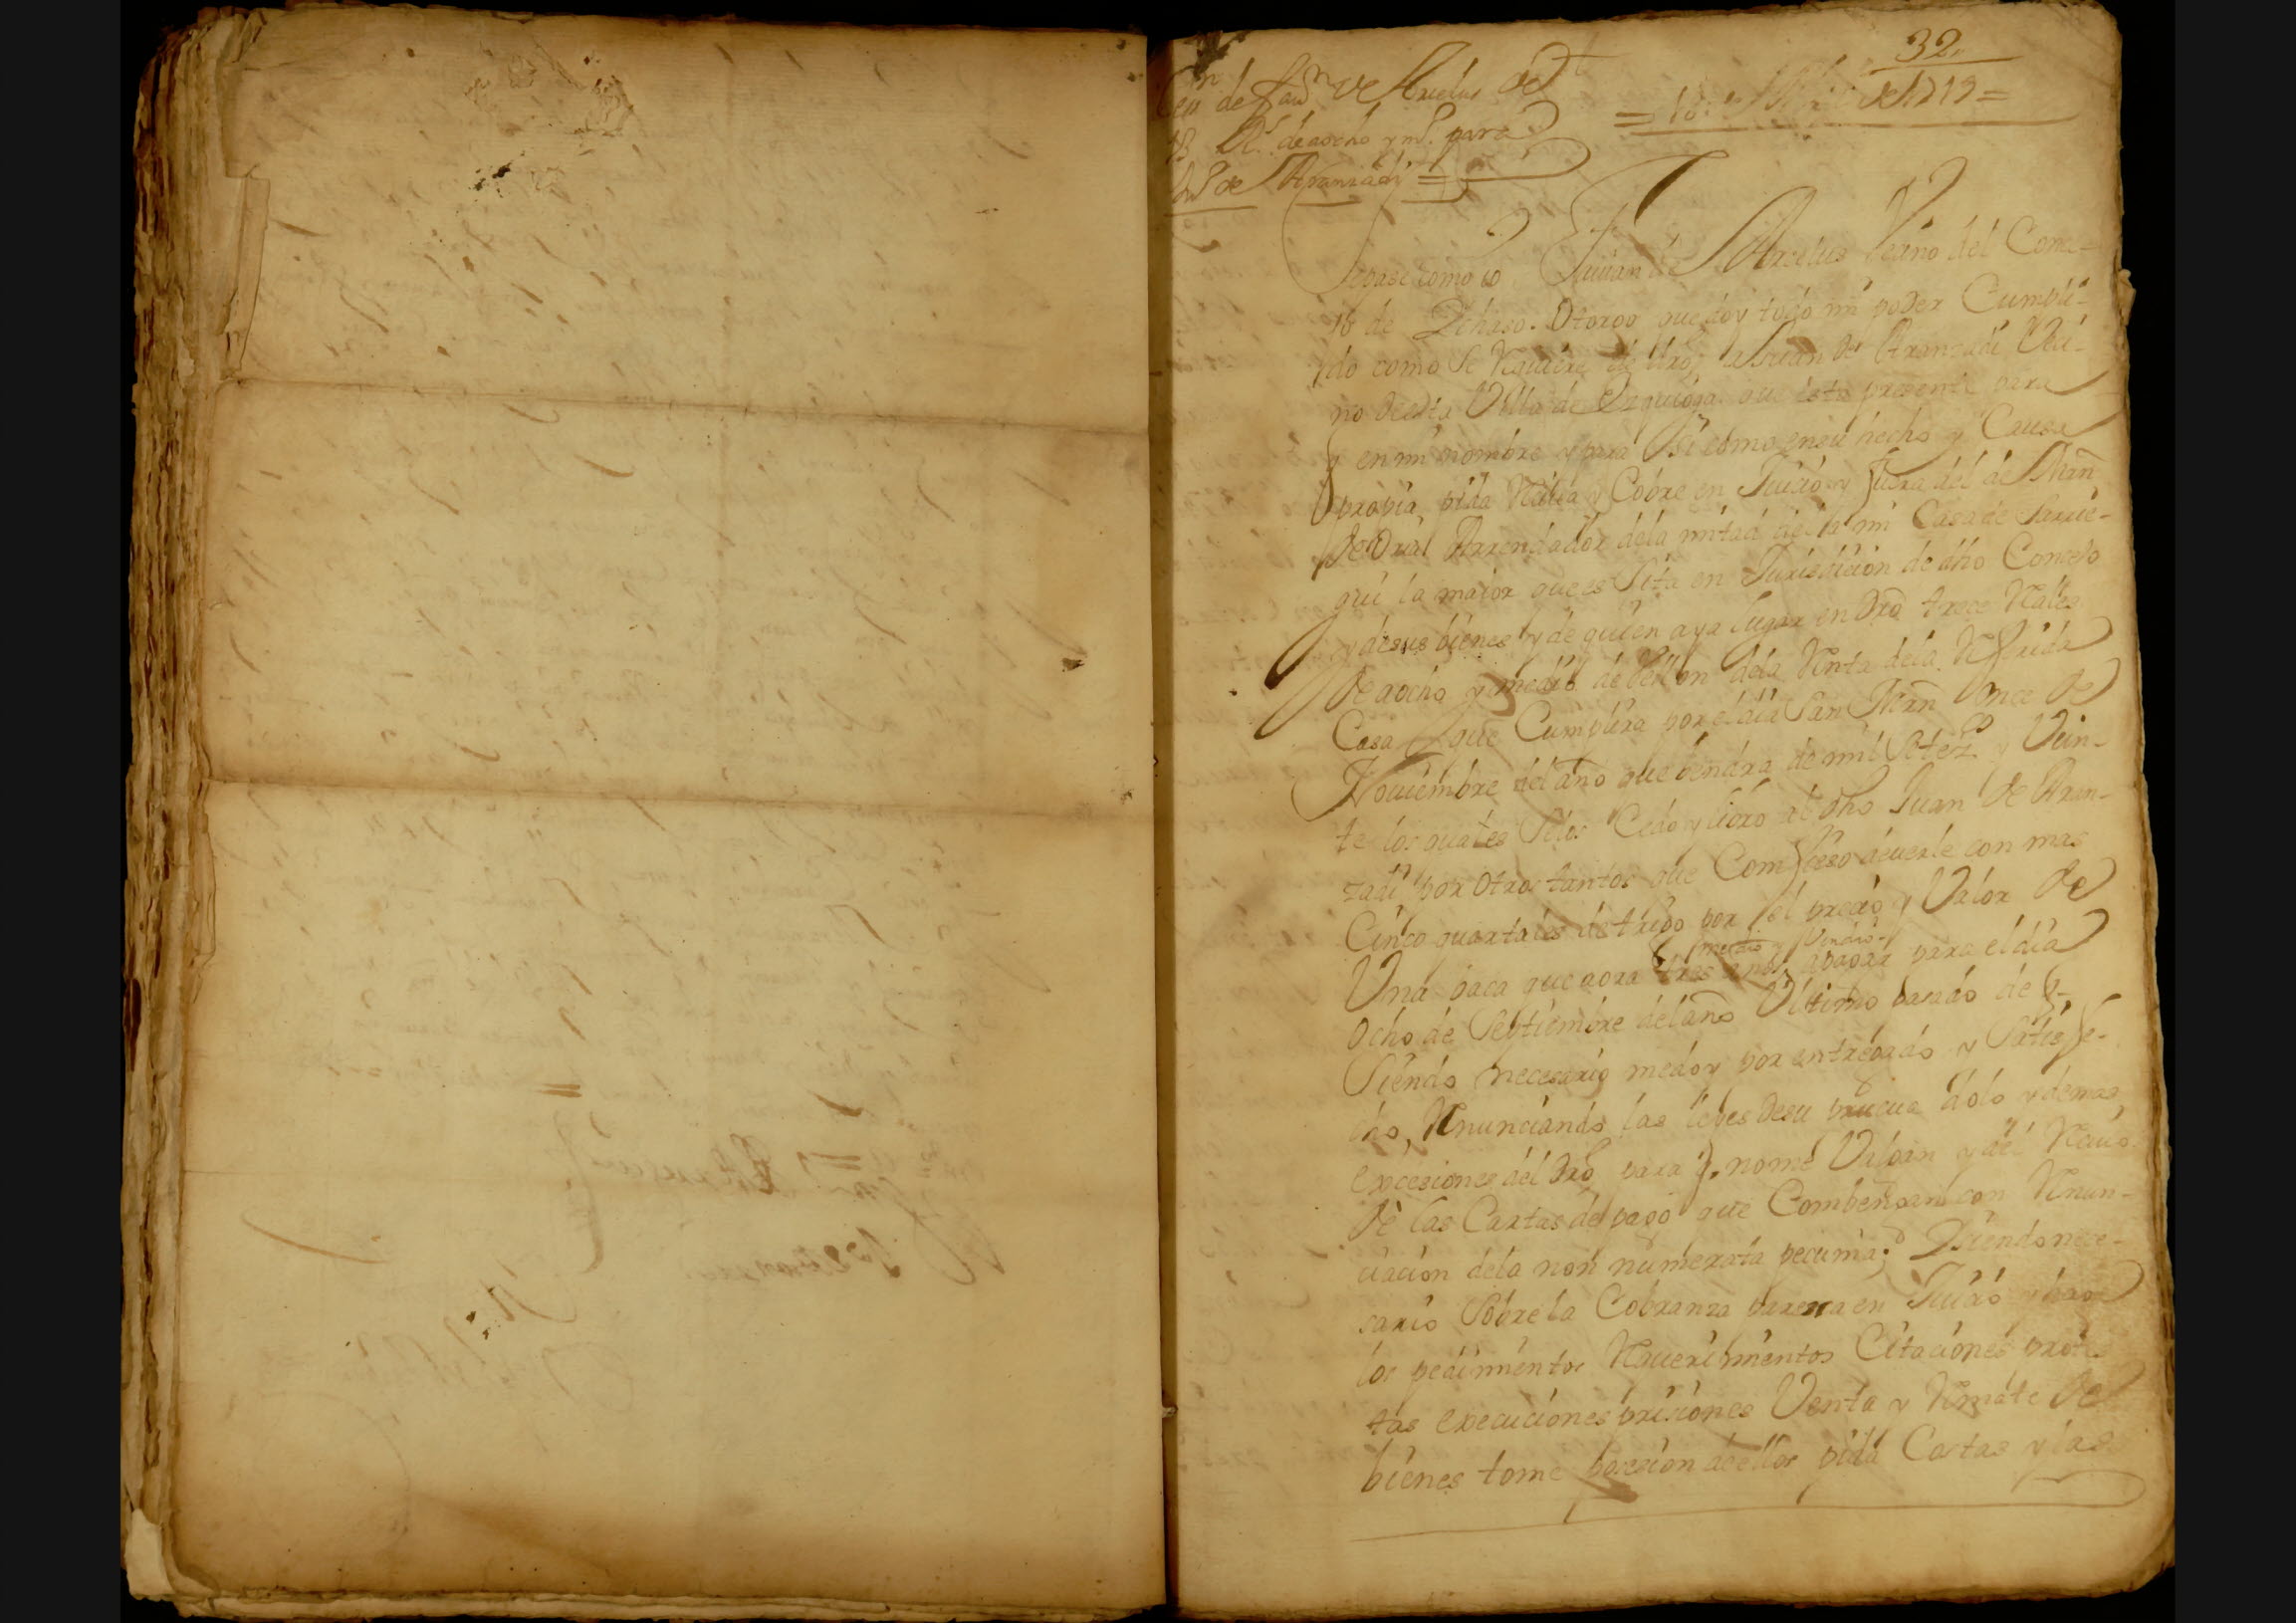 32
de Juan de Arcelus de
13 Rs. de aocho y mº. para
Juº de Aranzadi =
= 10 de 1719 =
Sepase como io Juan de Arcelus Vezino del Conce-
jo de Ichaso. Otorgo que doy todo mi poder Cumpli-
do como se Requiere de dro, a Juan de Aranzadi Veci-
no de esta Villa de Ezquioga que esta presente para
q en mi nombre y para Si como en su hecho y Causa
propia, pida Reciva y Cobre en Juicio y fuera del de Mrn
de Oria Arrendador dela mitad de la mi Casa de Sarrie-
gui la maior que es Sita en Jurisdicion de dho Concejo
y desus bienes y de quien aya lugar en Dro trece Rales
de aocho y medio de Vellon dela Renta dela Referida
Casa, que Cumplira por el dia San Mrn Once de
Noviembre del año que bendra de mil Setezos y Vein-
te los quales Selos Cedo y libro al dho Juan de Aran-
zadi por Otros tantos que Comfieso deverle con mas
Cinco quartales de trigo por el precio y Valor de
Una baca que aora tres años apagar para el dia
me dio y Vendio
Ocho de Septiembre del año Ultimo pasado de q.
Siendo necesario medoy por entregado y Satisfe-
cho, Renunciando las leyes desu prueua dolo y demas
excesiones del Dro para q. nome Valgan y del Reciuo
de las Cartas de pago que Combengan con Renun-
ciacion dela non numerata pecunia; Siendo nece-
sario Sobre la Cobranza parezca en Juicio y haga
los pedimientos Requerimientos Citaciones protes
tas execuciones prisiones Venta y Remate de
bienes tome posesion de ellos pida Cartas y las